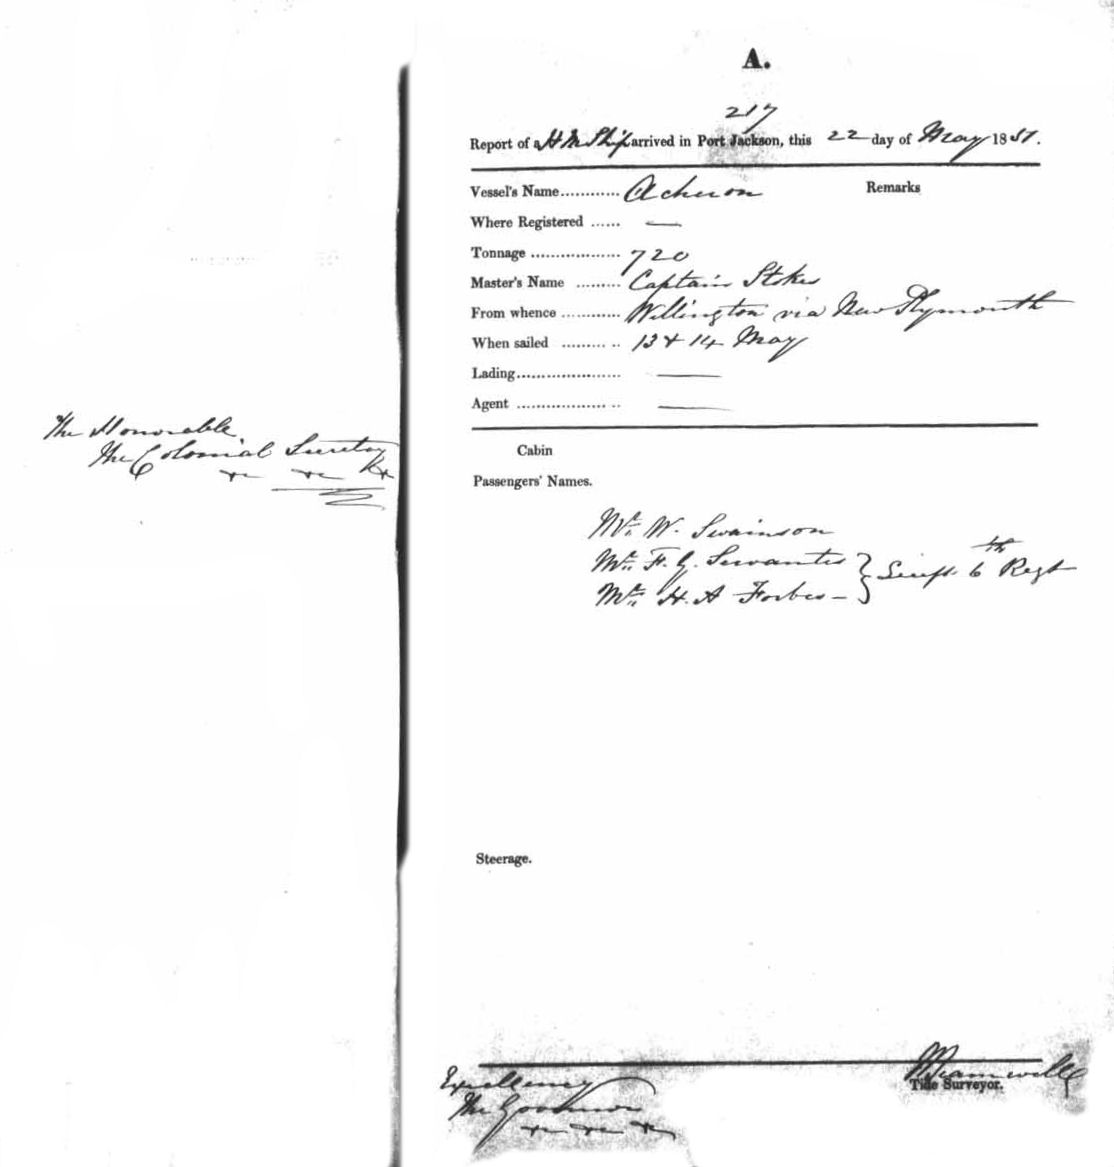 The Honorable
The Colonial Secretary
A.
217
Report of a H M Ship arrived in Port Jackson, this 22 day of May 1851.
Vessel's Name............ Acheron
Remarks
Where Registered ...... —
Tonnage .................. 720
Master's Name ......... Captain Stokes
From whence ............ Wellington via New Plymouth
When sailed ......... .. 13 & 14 May
Lading..................... —
Agent .................. .. —
Cabin
Passengers' Names.
Mr. W. Swainson
Mr. F. G. Servantes } 6th Regt
Mr. H. A Forbes – }
Steerage.
Excellency
The Governor
Tide Surveyor.